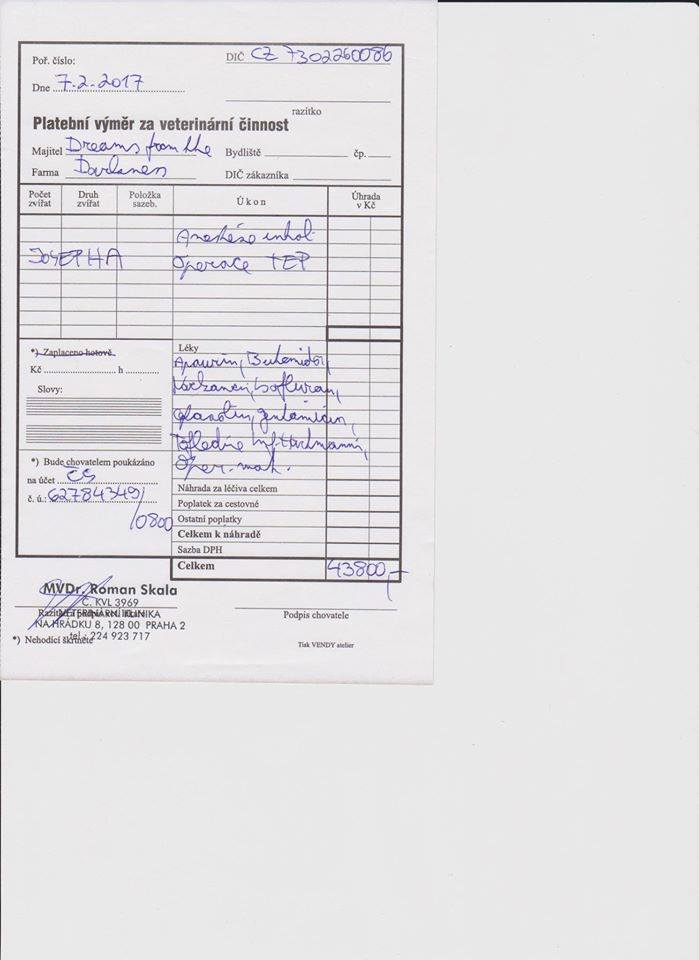 Poř. číslo:
DIČ CZ 7302260086
Dne 7.2.2017
razítko
Platební výměr za veterinární činnost
Majitel Dreams from the
Bydliště čp.
Farma
DIČ zákazníka
Počet zvířat Druh zvířat Položka sazeb. Úkon Úhrada v Kč
inhal.
JOSEPHA Operace TEP
*) Zaplaceno hotově
Kč h
Slovy:
Léky
Apaurin,
Isofluran,
gentamicin,
inf. Hartmanni,
Oper. mat.
*) Bude chovatelem poukázáno
na účet ČS
č. ú.: 62784349/
/0800
Náhrada za léčiva celkem
Poplatek za cestovné
Ostatní poplatky
Celkem k náhradě
Sazba DPH
Celkem 43800,-
MVDr. Roman Skala
Č. KVL 3969
VETERINÁRNÍ KLINIKA
NA HRÁDKU 8, 128 00 PRAHA 2
tel.: 224 923 717
*) Nehodící škrtněte
Podpis chovatele
Tisk VENDY atelier